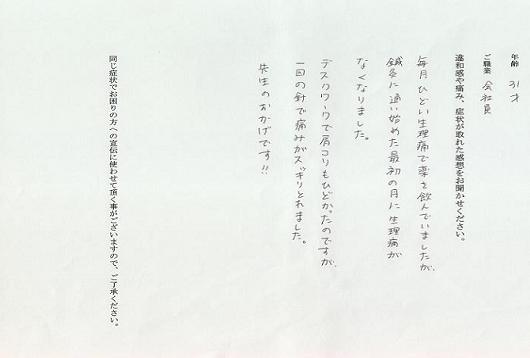 年齢 31才
ご職業 会社員
違和感や痛み、症状が取れた感想をお聞かせください。
毎月ひどい生理痛で薬を飲んでいましたが、
鍼灸に通い始めた最初の月に生理痛が
なくなりました。
デスクワークで肩コリもひどかったのですが、
一回の針で痛みがスッキリとれました。
先生のおかげです!!
同じ症状でお困りの方への宣伝に使わせて頂く事がございますので、ご了承ください。